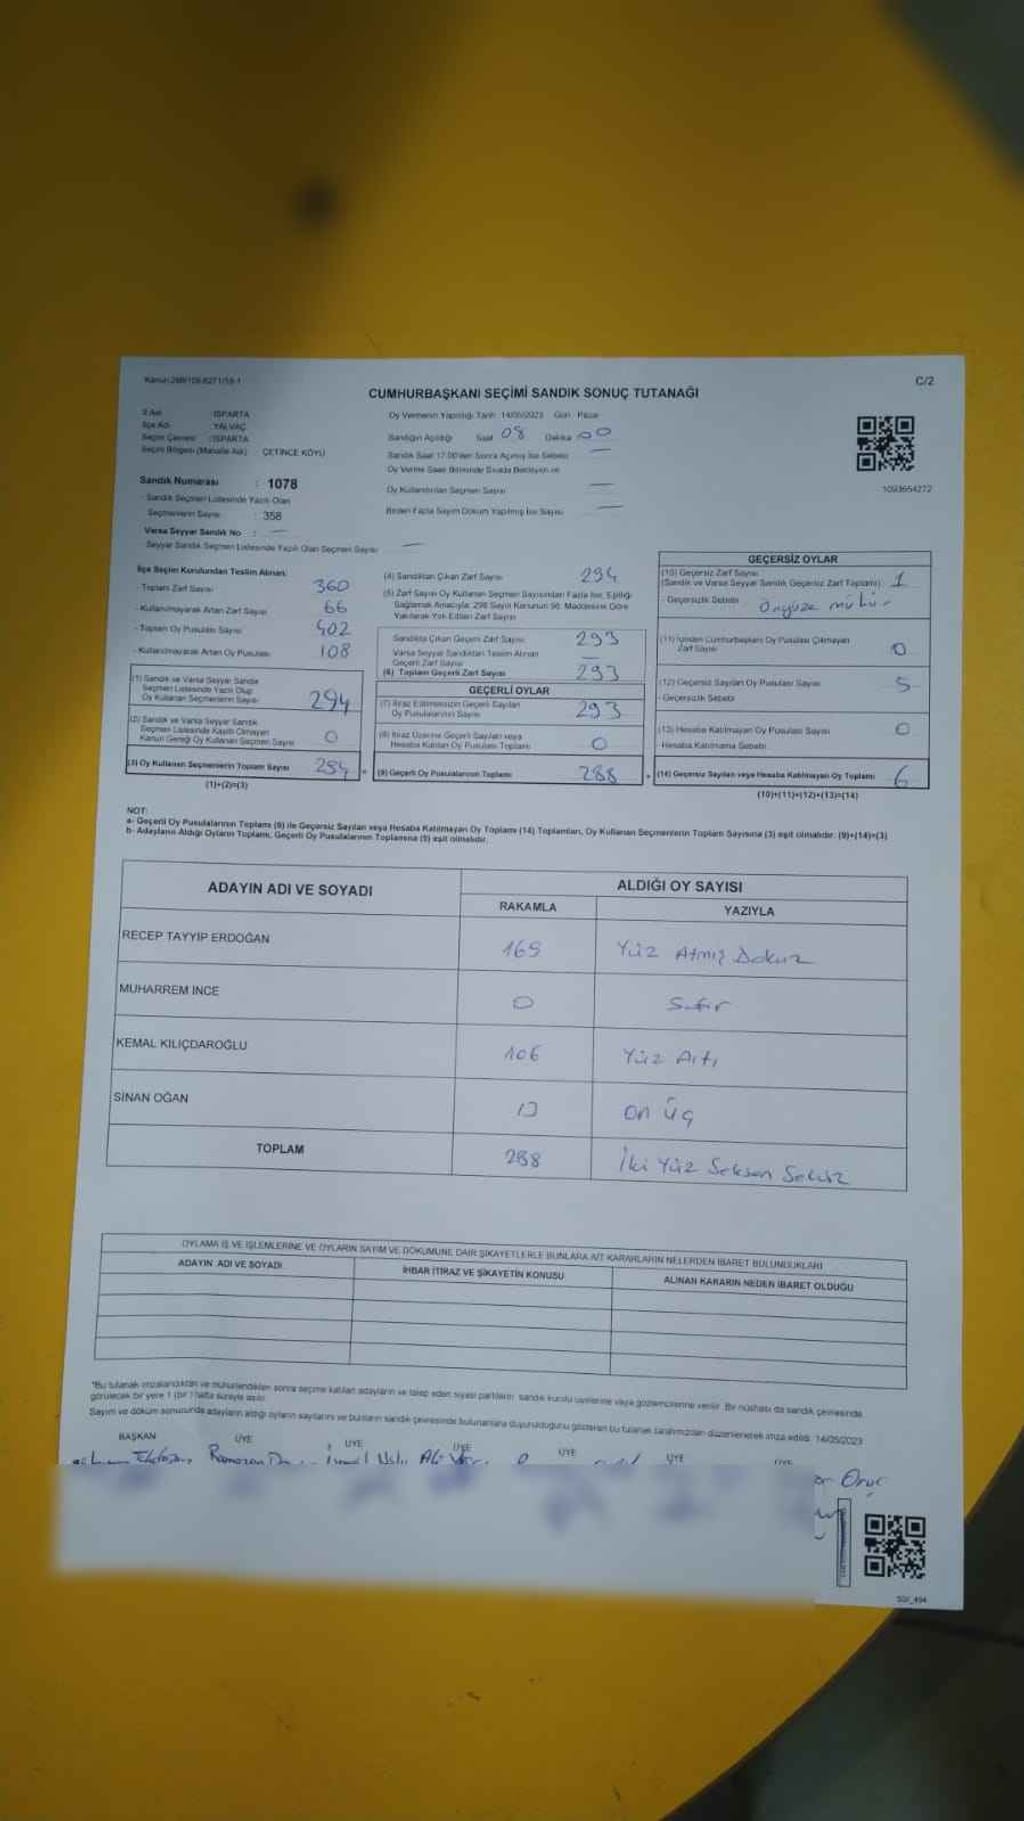 Kanun:298/109-6271/19-1
C/2
CUMHURBAŞKANI SEÇİMİ SANDIK SONUÇ TUTANAĞI
İl Adı : ISPARTA
İlçe Adı : YALVAÇ
Seçim Çevresi : ISPARTA
Seçim Bölgesi (Mahalle Adı) ÇETİNCE KÖYÜ
Sandık Numarası : 1078
Sandık Seçmen Listesinde Yazılı Olan
Seçmenlerin Sayısı : 358
Varsa Seyyar Sandık No : —
Seyyar Sandık Seçmen Listesinde Yazılı Olan Seçmen Sayısı —
Oy Vermenin Yapıldığı Tarih: 14/05/2023 Gün : Pazar
Sandığın Açıldığı Saat 08 Dakika 00
Sandık Saat 17.00'den Sonra Açılmış İse Sebebi —
Oy Verme Saati Bitiminde Sırada Bekleyen ve
Oy Kullandırılan Seçmen Sayısı —
Birden Fazla Sayım Döküm Yapılmış İse Sayısı —
1093654272
İlçe Seçim Kurulundan Teslim Alınan:
- Toplam Zarf Sayısı 360
- Kullanılmayarak Artan Zarf Sayısı 66
- Toplam Oy Pusulası Sayısı 402
- Kullanılmayarak Artan Oy Pusulası 108
(1) Sandık ve Varsa Seyyar Sandık
Seçmen Listesinde Yazılı Olup
Oy Kullanan Seçmenlerin Sayısı 294
(2) Sandık ve Varsa Seyyar Sandık
Seçmen Listesinde Kayıtlı Olmayan
Kanun Gereği Oy Kullanan Seçmen Sayısı 0
(3) Oy Kullanan Seçmenlerin Toplam Sayısı 294
(1)+(2)=(3)
(4) Sandıktan Çıkan Zarf Sayısı 294
(5) Zarf Sayısı Oy Kullanan Seçmen Sayısından Fazla İse, Eşitliği
Sağlamak Amacıyla; 298 Sayılı Kanunun 98. Maddesine Göre
Yakılarak Yok Edilen Zarf Sayısı
Sandıkta Çıkan Geçerli Zarf Sayısı 293
Varsa Seyyar Sandıktan Teslim Alınan
Geçerli Zarf Sayısı —
(6) Toplam Geçerli Zarf Sayısı 293
GEÇERLİ OYLAR
(7) İtiraz Edilmeksizin Geçerli Sayılan
Oy Pusulalarının Sayısı 293
(8) İtiraz Üzerine Geçerli Sayılan veya
Hesaba Katılan Oy Pusulası Toplamı 0
(9) Geçerli Oy Pusulalarının Toplamı 288
GEÇERSİZ OYLAR
(10) Geçersiz Zarf Sayısı
(Sandık ve Varsa Seyyar Sandık Geçersiz Zarf Toplamı) 1
- Geçersizlik Sebebi Önyüze mühür
(11) İçinden Cumhurbaşkanı Oy Pusulası Çıkmayan
Zarf Sayısı 0
(12) Geçersiz Sayılan Oy Pusulası Sayısı 5
- Geçersizlik Sebebi
(13) Hesaba Katılmayan Oy Pusulası Sayısı 0
- Hesaba Katılmama Sebebi
(14) Geçersiz Sayılan veya Hesaba Katılmayan Oy Toplamı 6
(10)+(11)+(12)+(13)=(14)
NOT:
a- Geçerli Oy Pusulalarının Toplamı (9) ile Geçersiz Sayılan veya Hesaba Katılmayan Oy Toplamı (14) Toplamları, Oy Kullanan Seçmenlerin Toplam Sayısına (3) eşit olmalıdır. (9)+(14)=(3)
b- Adayların Aldığı Oyların Toplamı, Geçerli Oy Pusulalarının Toplamına (9) eşit olmalıdır.
ADAYIN ADI VE SOYADI
ALDIĞI OY SAYISI
RAKAMLA YAZIYLA
RECEP TAYYİP ERDOĞAN 169 Yüz Atmış Dokuz
MUHARREM İNCE 0 Sıfır
KEMAL KILIÇDAROĞLU 106 Yüz Altı
SİNAN OĞAN 13 On Üç
TOPLAM 288 İki Yüz Seksen Sekiz
OYLAMA İŞ VE İŞLEMLERİNE VE OYLARIN SAYIM VE DÖKÜMÜNE DAİR ŞİKAYETLERLE BUNLARA AİT KARARLARIN NELERDEN İBARET BULUNDUKLARI
ADAYIN ADI VE SOYADI İHBAR İTİRAZ VE ŞİKAYETİN KONUSU ALINAN KARARIN NEDEN İBARET OLDUĞU
*Bu tutanak imzalandıktan ve mühürlendikten sonra seçime katılan adayların ve talep eden siyasi partilerin sandık kurulu üyelerine veya gözlemcilerine verilir. Bir nüshası da sandık çevresinde
görülecek bir yere 1 (bir) hafta süreyle asılır.
Sayım ve döküm sonucunda adayların aldığı oyların sayılarını ve bunların sandık çevresinde bulunanlara duyurulduğunu gösteren bu tutanak tarafımızdan düzenlenerek imza edildi. 14/05/2023
BAŞKAN ÜYE ÜYE ÜYE ÜYE ÜYE ÜYE
Ramazan
Oruç